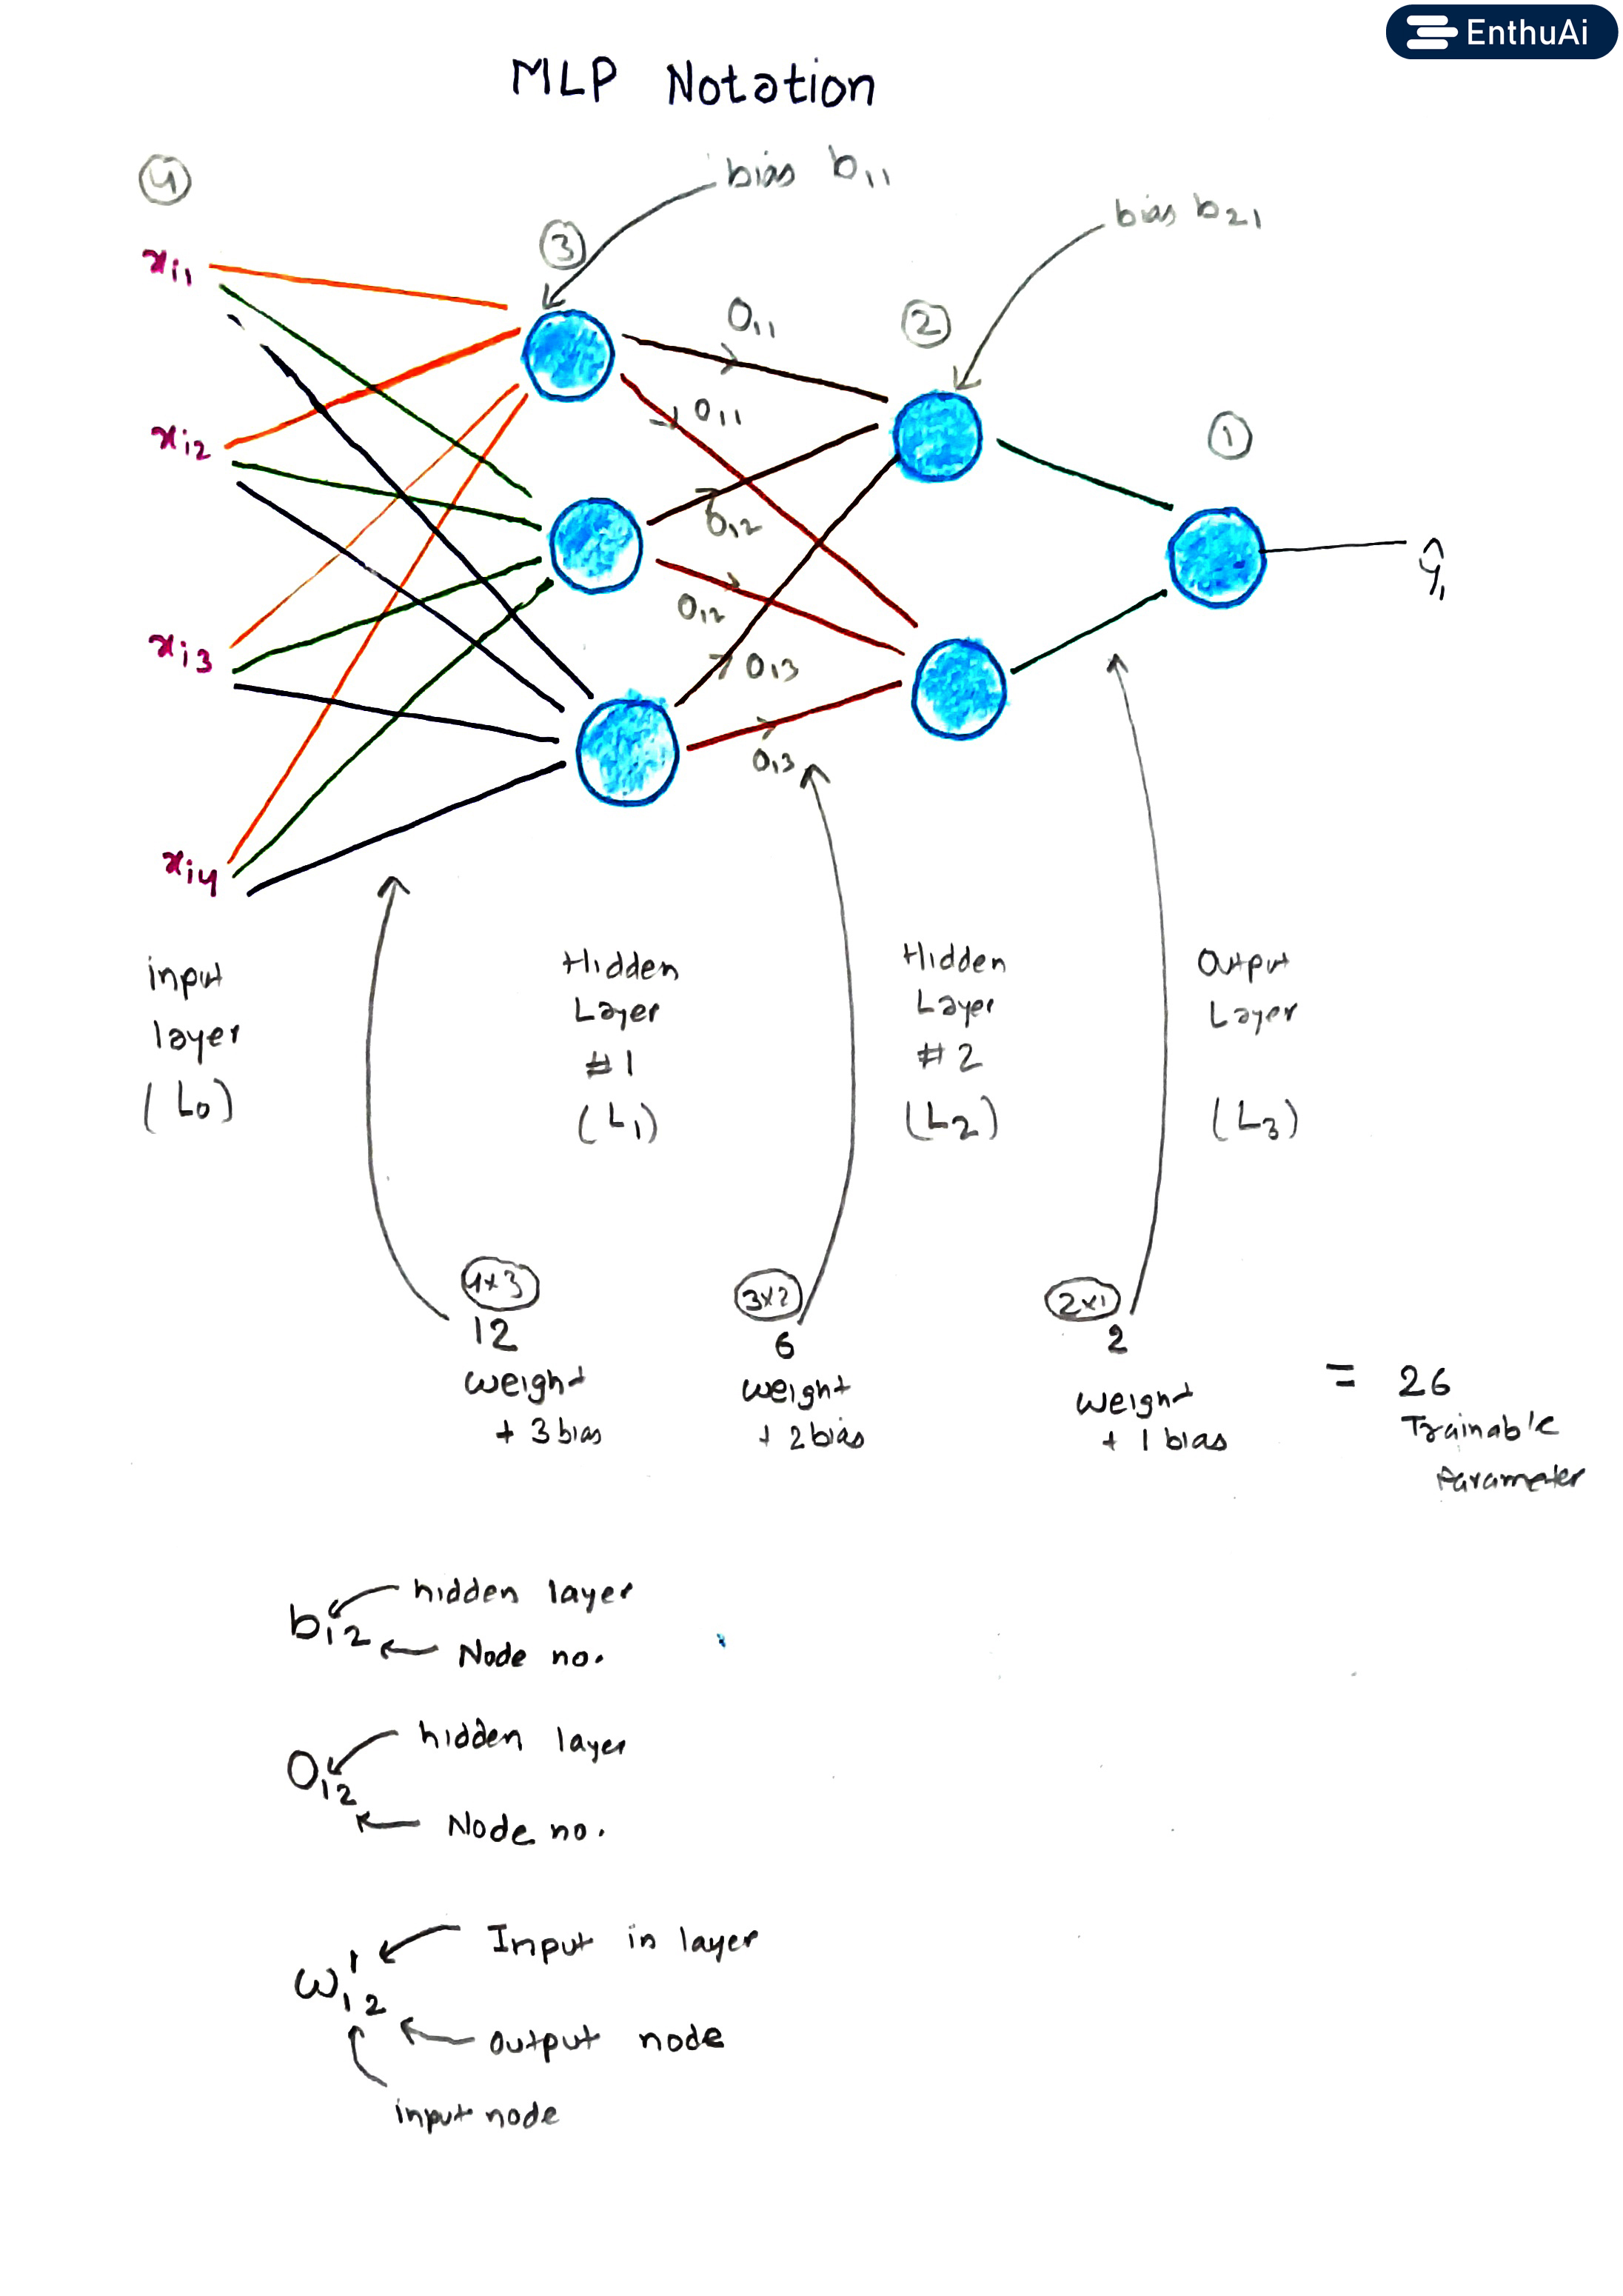 EnthuAi
MLP Notation
4
bias b11
bias b21
3
xi1
O11
2
O11
1
xi2
O12
ŷ1
O12
xi3
O13
O13
xi4
input
layer
(L0)
Hidden
Layer
#1
(L1)
Hidden
Layer
#2
(L2)
Output
Layer
(L3)
4x3
12
weight
+ 3 bias
3x2
6
weight
+ 2 bias
2x1
2
weight
+ 1 bias
= 26
Trainable
Parameter
b12
hidden layer
Node no.
O12
hidden layer
Node no.
w¹12
Input in layer
output node
input node